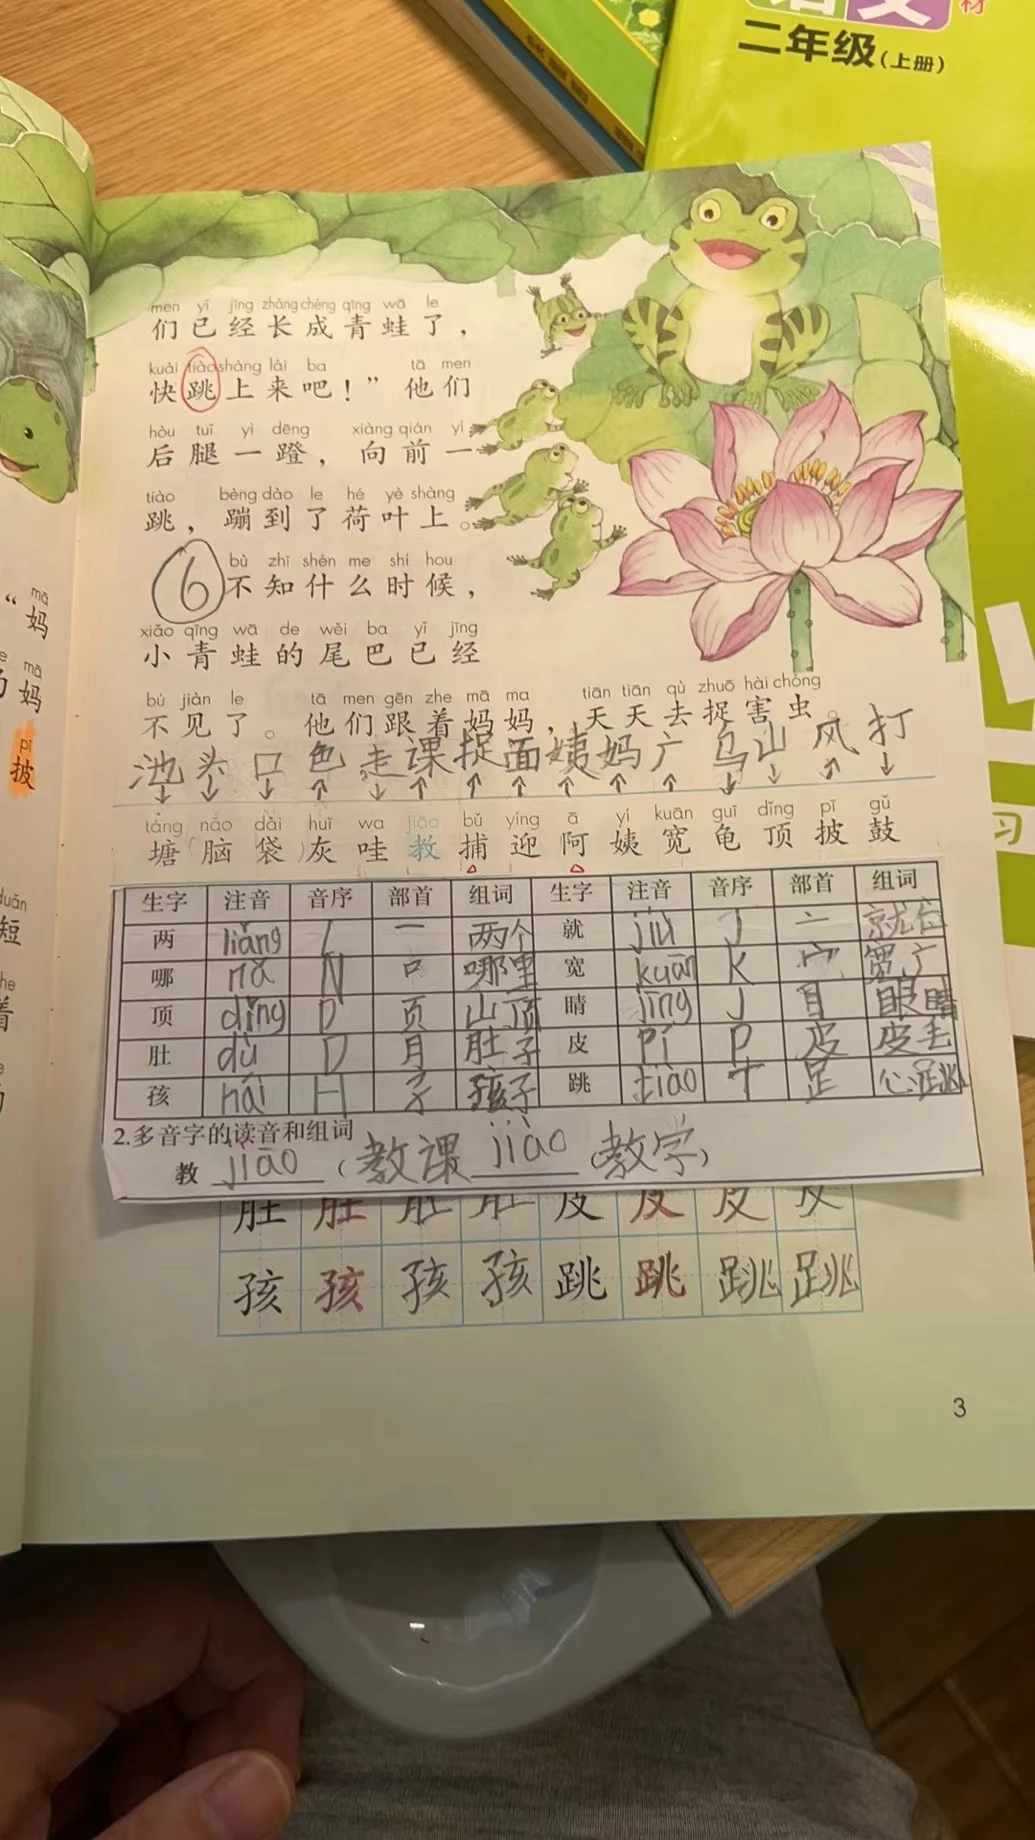 材
二年级(上册)
men yǐ jīng zhǎng chéng qīng wā le
们已经长成青蛙了，
kuài tiào shàng lái ba tā men
快跳上来吧！”他们
hòu tuǐ yì dēng xiàng qián yí
后腿一蹬，向前一
tiào bèng dào le hé yè shàng
跳，蹦到了荷叶上。
bù zhī shén me shí hou
⑥不知什么时候，
xiǎo qīng wā de wěi ba yǐ jīng
小青蛙的尾巴已经
bú jiàn le tā men gēn zhe mā ma tiān tiān qù zhuō hài chóng
不见了。他们跟着妈妈，天天去捉害虫。
池 头 口 色 走 课 捉 面 姨 妈 广 乌 山 风 打
↓ ↓ ↓ ↑ ↓ ↑ ↑ ↑ ↑ ↑ ↑ ↓ ↓ ↑ ↓
táng nǎo dài huī wa jiāo bǔ yíng ā yí kuān guī dǐng pī gǔ
塘(脑袋)灰哇教捕迎阿姨宽龟顶披鼓
生字 注音 音序 部首 组词 生字 注音 音序 部首 组词
两 liǎng l 一 两个 就 jiù J 亠 就位
哪 nǎ N 口 哪里 宽 kuān K 宀 宽广
顶 dǐng D 页 山顶 晴 jīng J 目 眼睛
肚 dù D 月 肚子 皮 pí P 皮 皮毛
孩 hái H 子 孩子 跳 tiào T 足 心跳
2.多音字的读音和组词
教 jiāo (教课 jiào 教学)
肚 肚 肚 肚 皮 皮 皮 皮
孩 孩 孩 孩 跳 跳 跳 跳
3
mā
“妈
mā
妈
pī
披
duǎn
短
zhe
着
习